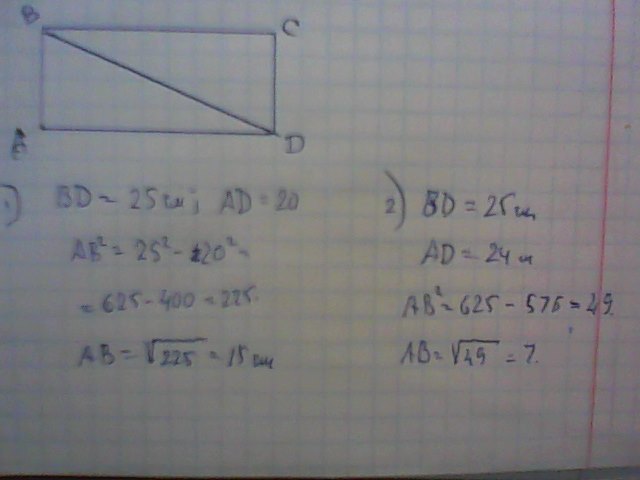 B
C
A
D
1) BD = 25 см; AD = 20
AB² = 25² - 20² =
= 625 - 400 = 225.
AB = √225 = 15 см
2) BD = 25 см
AD = 24 см
AB² = 625 - 576 = 49.
AB = √49 = 7.